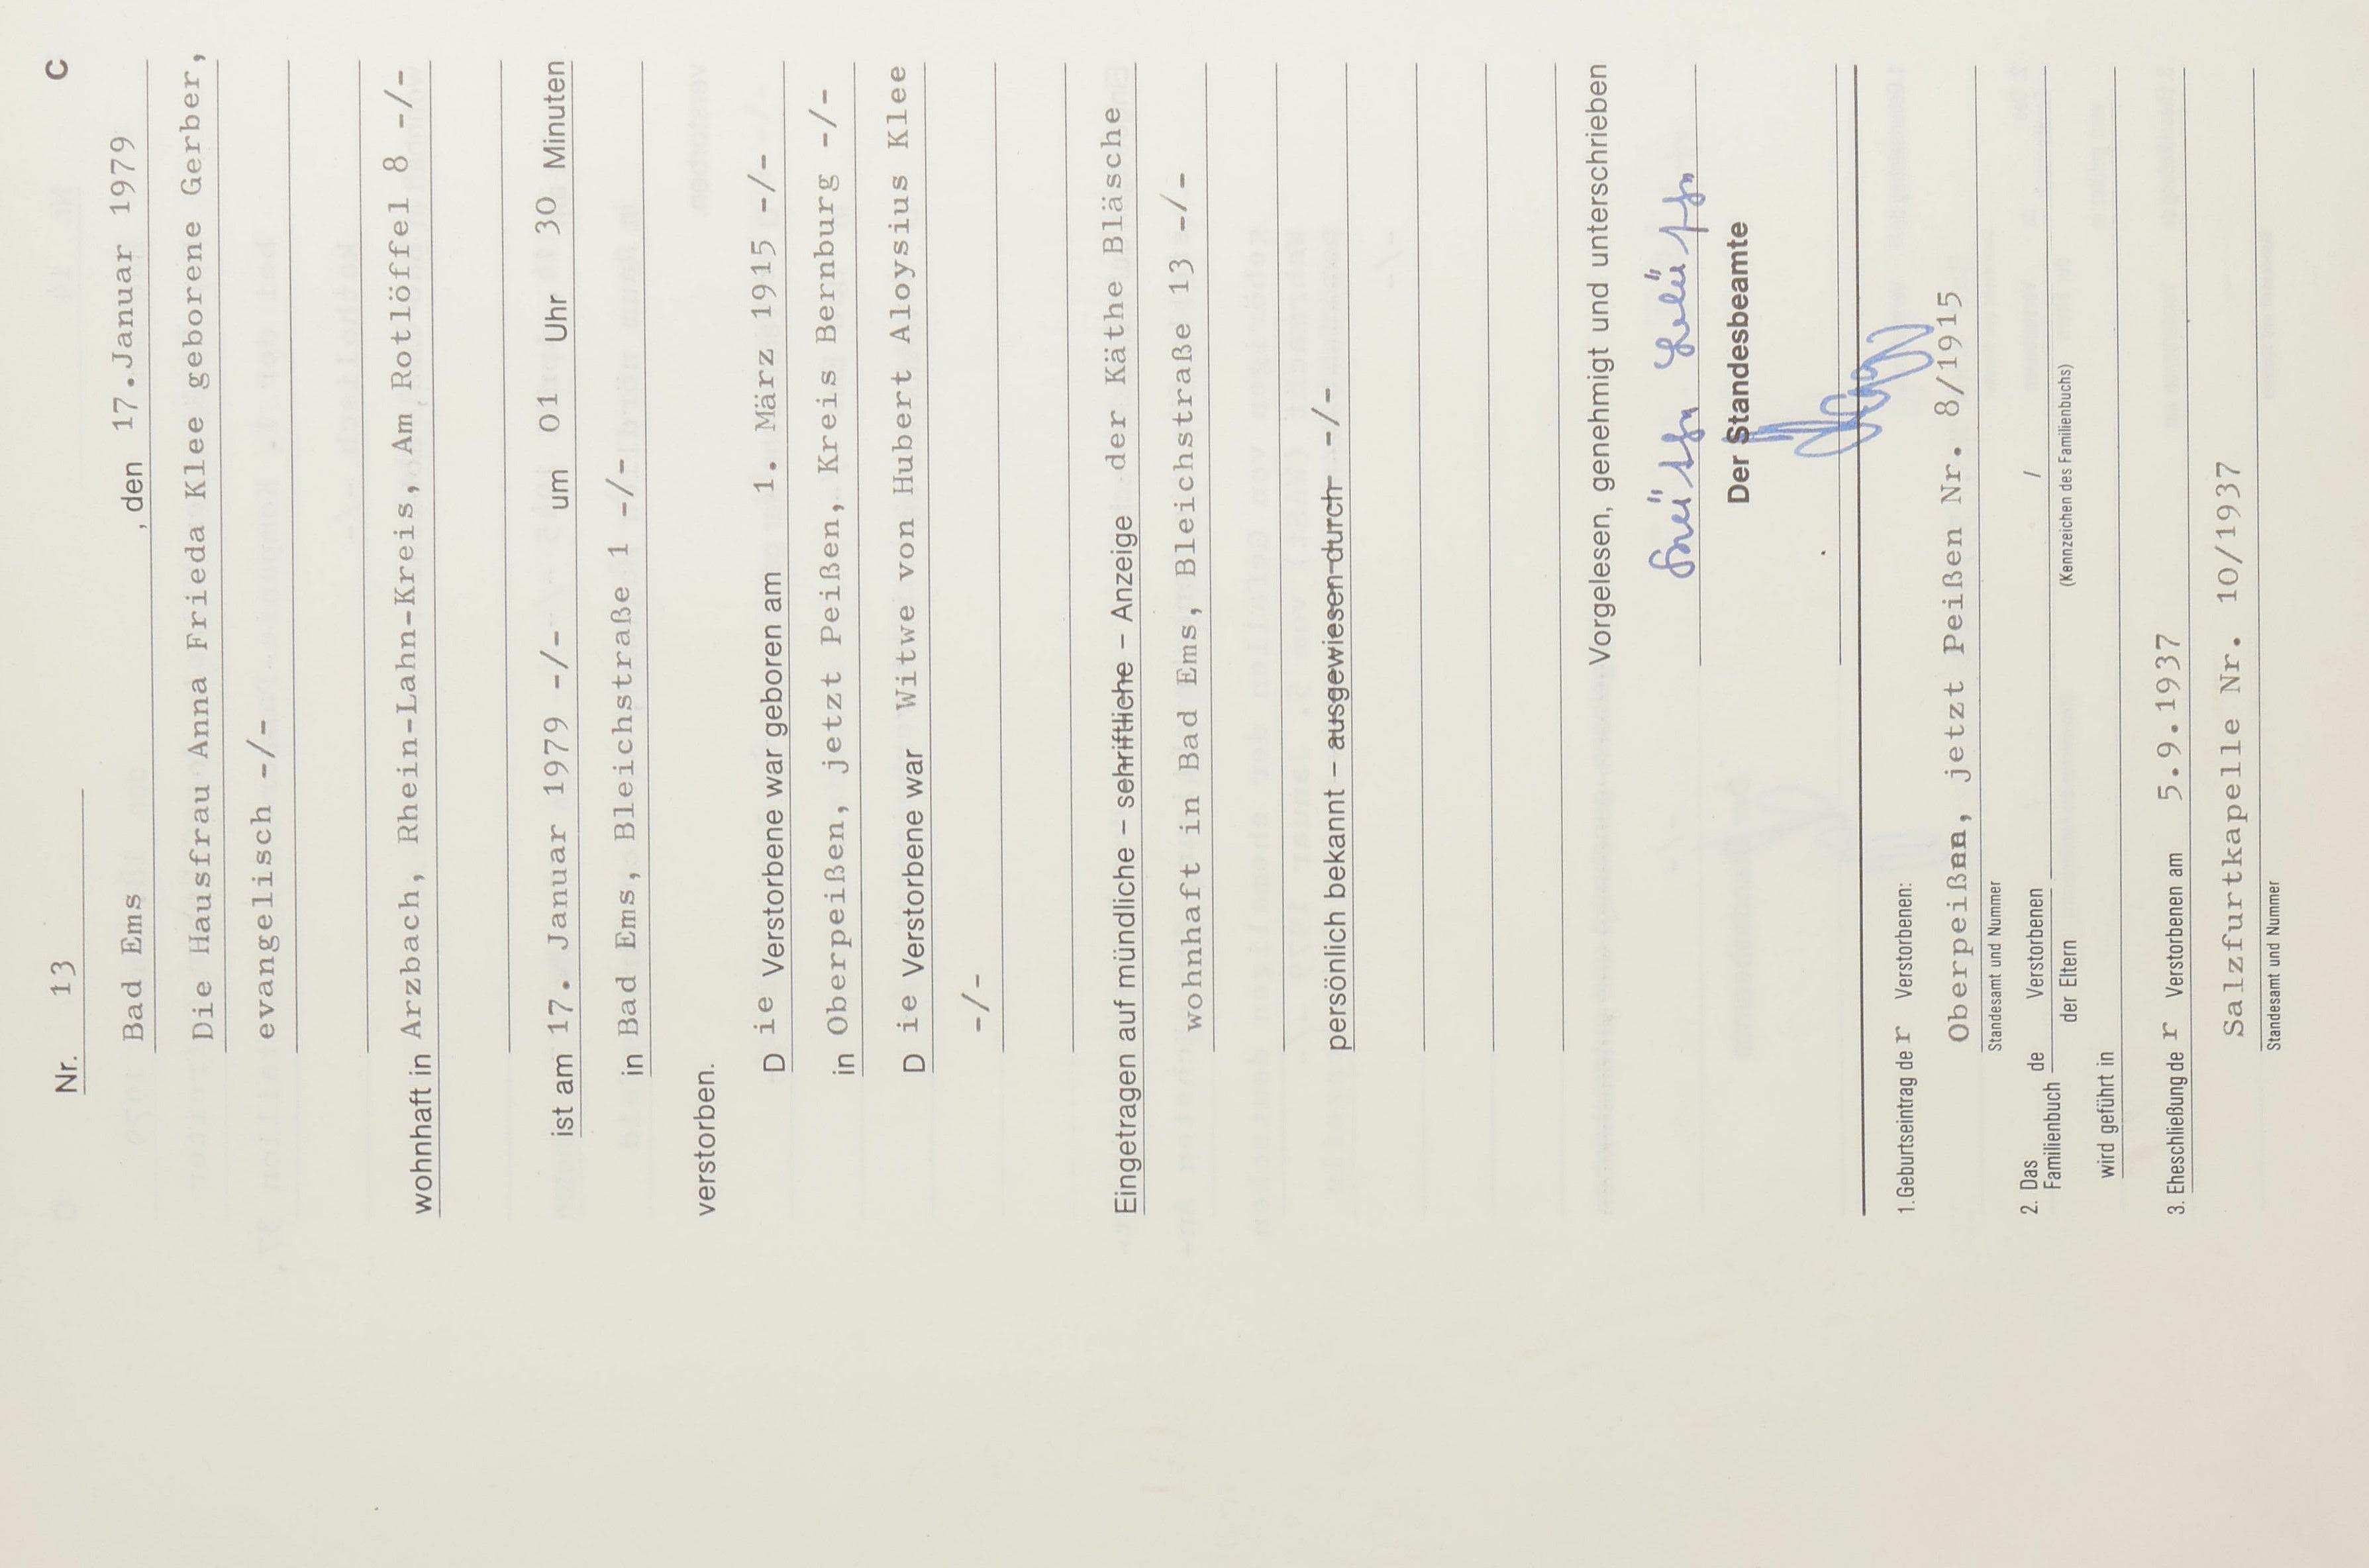 Nr. 13 C
Bad Ems, den 17.Januar 1979
Die Hausfrau Anna Frieda Klee geborene Gerber,
evangelisch -/-
wohnhaft in Arzbach, Rhein-Lahn-Kreis, Am Rotlöffel 8 -/-
ist am 17. Januar 1979 -/- um 01 Uhr 30 Minuten
in Bad Ems, Bleichstraße 1 -/-
verstorben.
Die Verstorbene war geboren am 1. März 1915 -/-
in Oberpeißen, jetzt Peißen, Kreis Bernburg -/-
Die Verstorbene war Witwe von Hubert Aloysius Klee
-/-
Eingetragen auf mündliche – schriftliche – Anzeige der Käthe Bläsche
wohnhaft in Bad Ems, Bleichstraße 13 -/-
persönlich bekannt – ausgewiesen durch -/-
Vorgelesen, genehmigt und unterschrieben
Der Standesbeamte
1. Geburtseintrag der Verstorbenen:
Oberpeißnn, jetzt Peißen Nr. 8/1915
Standesamt und Nummer
2. Das Familienbuch de Verstorbenen /
der Eltern (Kennzeichen des Familienbuchs)
wird geführt in
3. Eheschließung der Verstorbenen am 5.9.1937
Salzfurtkapelle Nr. 10/1937
Standesamt und Nummer